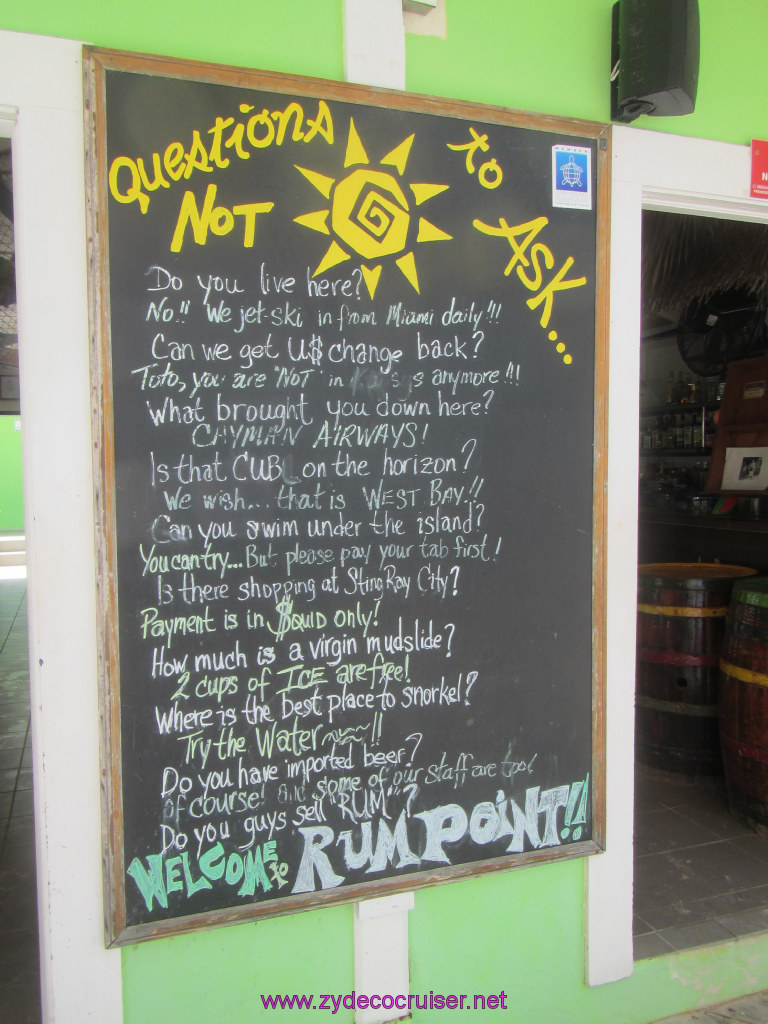 Questions
NOT
to
ASK...
Do you live here?
No!! We jet-ski in from Miami daily!!!
Can we get U$ change back?
Toto, you are "NOT" in Kansas anymore!!!
What brought you down here?
CAYMAN AIRWAYS!
Is that CUBA on the horizon?
We wish... that is WEST BAY!!
Can you swim under the island?
You can try... But please pay your tab first!
Is there shopping at StingRay City?
Payment is in $QUID only!
How much is a virgin mudslide?
2 cups of ICE are free!
Where is the best place to snorkel?
Try the Water~~~!!
Do you have imported beer?
of course! and some of our staff are too!
Do you guys sell "RUM"?
WELCOME to RUM POINT!!
www.zydecocruiser.net